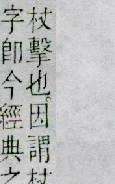 杖擊也因謂杖
字卽今經典之